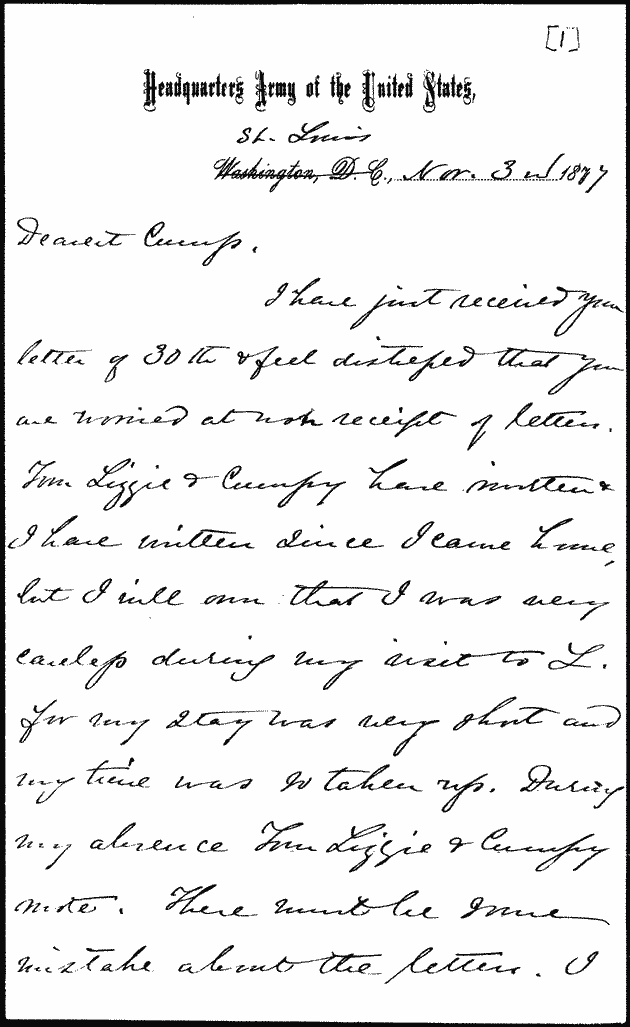 [1]
Headquarters Army of the United States,
St. Louis
Washington, D. C., Nov. 3rd 1877
Dearest Cump.
I have just received your
letter of 30th & feel distressed that you
are worried at non receipt of letters.
Tom Lizzie & Cumpy have written &
I have written since I came home,
but I will own that I was very
careless during my visit to L.
for my stay was very short and
my time was so taken up. During
my absence Tom Lizzie & Cumpy
wrote. There must be some
mistake about the letters. I